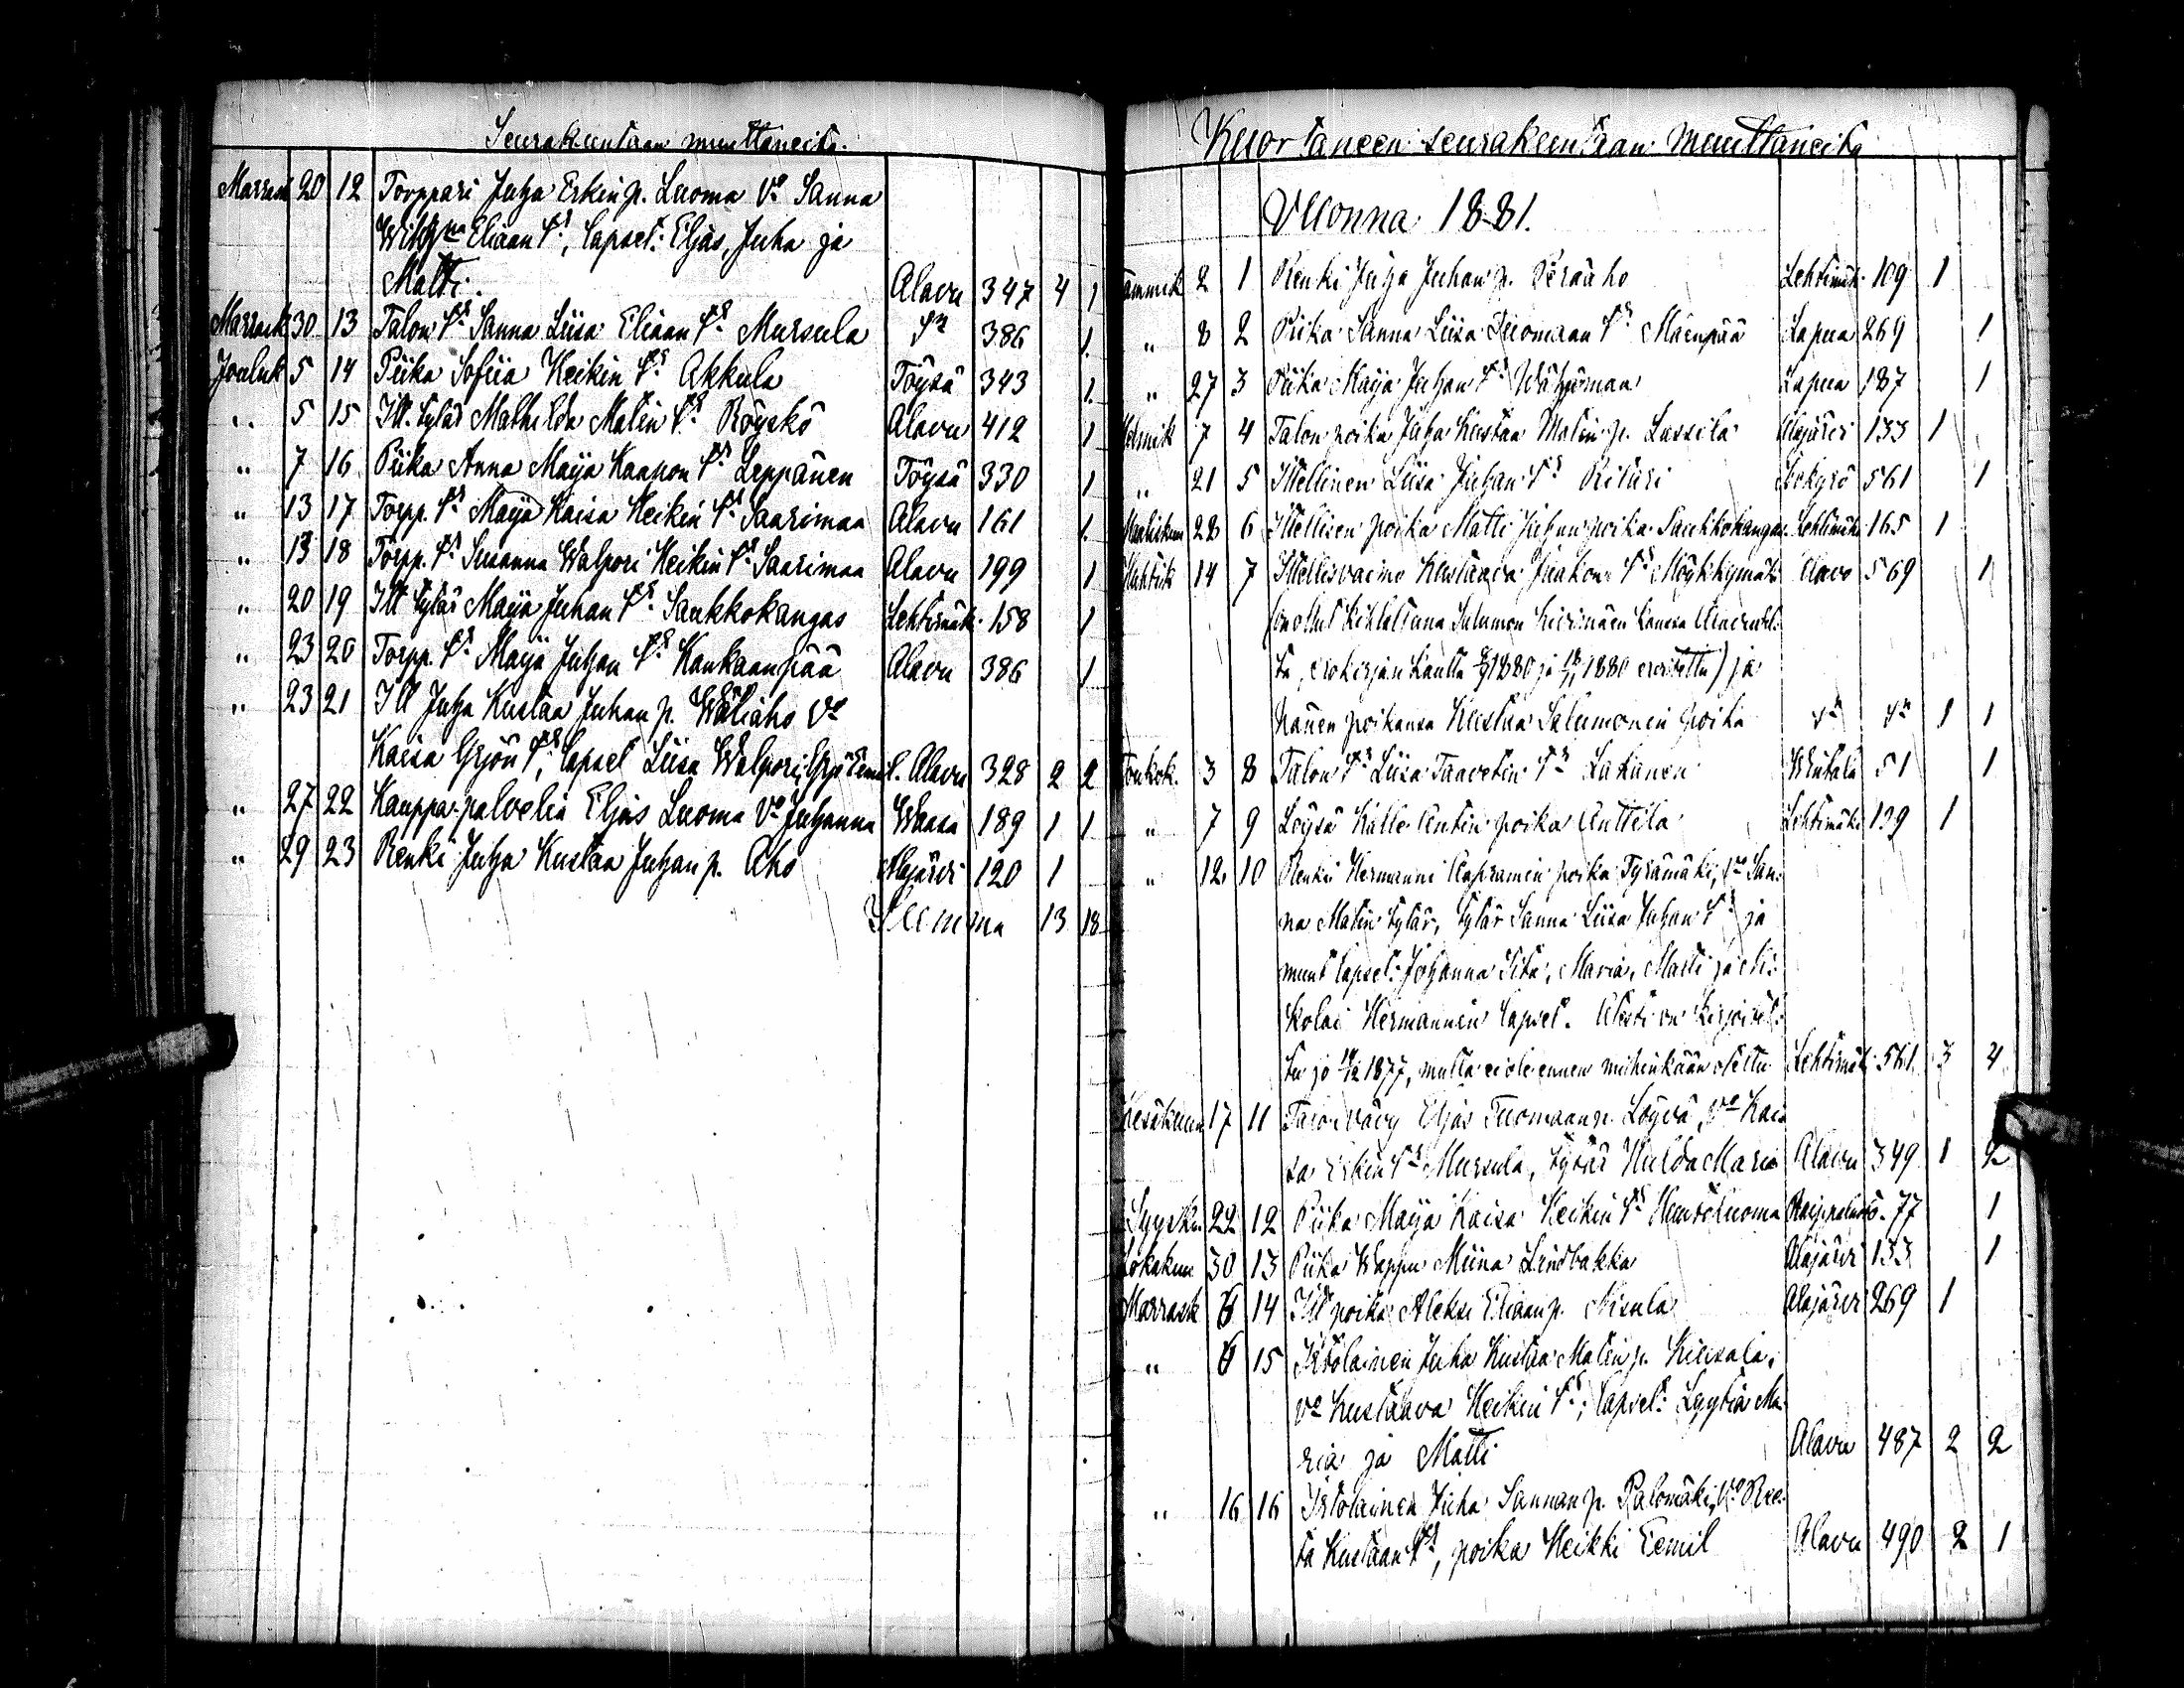 Seurakuntaan muuttaneita.
Marrask 20 12 Torppari Juha Erkin p. Luoma Vo Sanna
Eliaan tr, lapset: Eljas, Juha ja
Matti. Alavu 347 4 1
Marrask 30 13 Talon tr Sanna Liisa Eliaan tr Mursula 386 1
Jouluk 5 14 Piika Sofiia Heikin tr Akkula Töysä 343 1
" 5 15 Itt. tytär Mathilda Matin tr Röyskö Alavu 412 1
" 7 16 Piika Anna Maija Kaapon tr Leppänen Töysä 330 1
" 13 17 Torpp. tr Maija Kaisa Heikin tr Saarimaa Alavu 161 1
" 13 18 Torpp. tr Susanna Walpori Heikin tr Saarimaa Alavu 199 1
" 20 19 Itt tytär Maija Juhan tr Saukkokangas Lehtimäk. 158 1
" 23 20 Torpp. tr Maija Juhan tr Kankaanpää Alavu 386 1
" 23 21 Itt Juha Kustaa Juhan p. Wäliaho Vo
Kaisa Yrjön tr, lapset Liisa Walpori, Yrjö Eemel. Alavu 328 2 2
" 27 22 Kauppa-palvelia Eljas Luoma Vo Juhanna Waasa 189 1 1
" 29 23 Renki Juha Kustaa Juhan p. Aho Alajärvi 120 1
Summa 13 18
Kuortaneen seurakuntaan muuttaneita
Vuonna 1881.
Tammik 2 1 Renki Juha Juhan p. Peräaho Lehtimäk. 109 1
" 8 2 Piika Sanna Liisa Tuomaan tr Mäenpää Lapua 269 1
" 27 3 Piika Maija Juhan tr Lapua 187 1
Helmik 7 4 Talon poika Juha Kustaa Matin p. Lassila Alajärvi 133 1
" 21 5 Ittellinen Liisa Juhan tr Isokyrö 561 1
Maaliskuu 28 6 Ittellisen poika Matti Juhan poika Saukkokangas. Lehtimäki 165 1
Huhtik 14 7 Ittellisvaimo Kustaava Jaakon tr Alavo 569 1
(on ollut kihlattuna Salomon kanssa
ta, erokirjan kautta 1880 ja 1880 eroitettu) ja
hänen poikansa Kustaa Salomonin poika 1 1
Toukok. 3 8 Talon tr Liisa Taavetin tr Lakanen Wintala 51 1
" 7 9 Löysä Kalle Antin poika Anttila Lehtimäki 139 1
" 12. 10 Renki Hermanni Aapramin poika Tyrämäki, Vo San-
na Matin tytär, tytär Sanna Liisa Juhan tr ja
muut lapset: Johanna Maria, Matti ja Ni-
kolai Hermannin lapset. Atesti on kirjoitet-
tu jo 1877, mutta ei ole ennen mihinkään otettu Lehtimäk. 561. 3 4
Kesäkuu 17 11 Talon vävy Eljas Tuomaan p. Löyvä, Vo Kai-
sa Erkin tr Mursula, tytär Hulda Maria Alavu 349 1 2
Syysk. 22 12 Piika Maija Kaisa Heikin tr 77 1
Lokakuu 30 13 Piika Wappu Miina Lindbakka Alajärvi 133 1
Marrask 6 14 Itt poika Aleksi Eliaan p. Nisula Alajärvi 269 1
" 6 15 Itölainen Juha Kustaa Matin p. Kiisala,
Vo Kustaava Heikin tr; lapset: Lyytia Ma-
ria ja Matti Alavu 487 2 2
" 16 16 Itölainen Juha Sannan p. Palomäki, Vo Ree-
ta Kustaan tr, poika Heikki Eemil Alavu 490 2 1